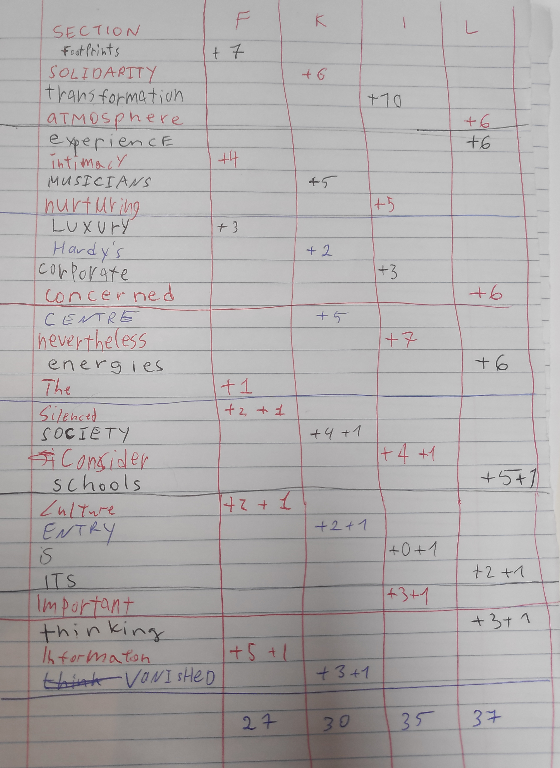 SECTION F K I L
Footprints +7
SOLIDARITY +6
transformation +10
ATMOSphere +6
experiencE +6
intimacy +4
MUSICIANS +5
nurturing +5
LUXURY +3
Hardy's +2
corporate +3
concerned +6
CENTRE +5
nevertheless +7
energies +6
The +1
Silenced +2 +1
SOCIETY +4 +1
Consider +4 +1
schools +5+1
Culture +2 + 1
ENTRY +2+1
is +0+1
ITS +2 +1
Important +3+1
thinking +3+1
Information +5 +1
think VONISHED +3+1
27 30 35 37